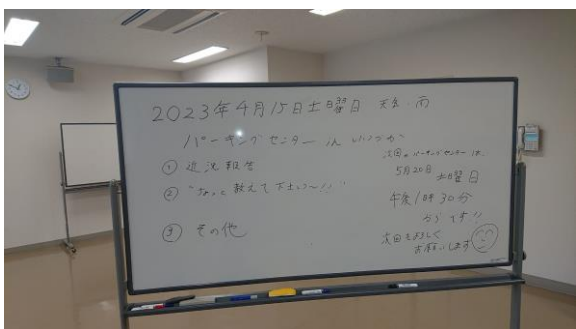 2023年4月15日土曜日 天気・雨
パーキングセンター in いいづか
① 近況報告
② "ちょっと教えて下さい〜!!"
③ その他
次回のパーキングセンターは、
5月20日 土曜日
午後1時30分
からです!!
次回もよろしく
お願いします